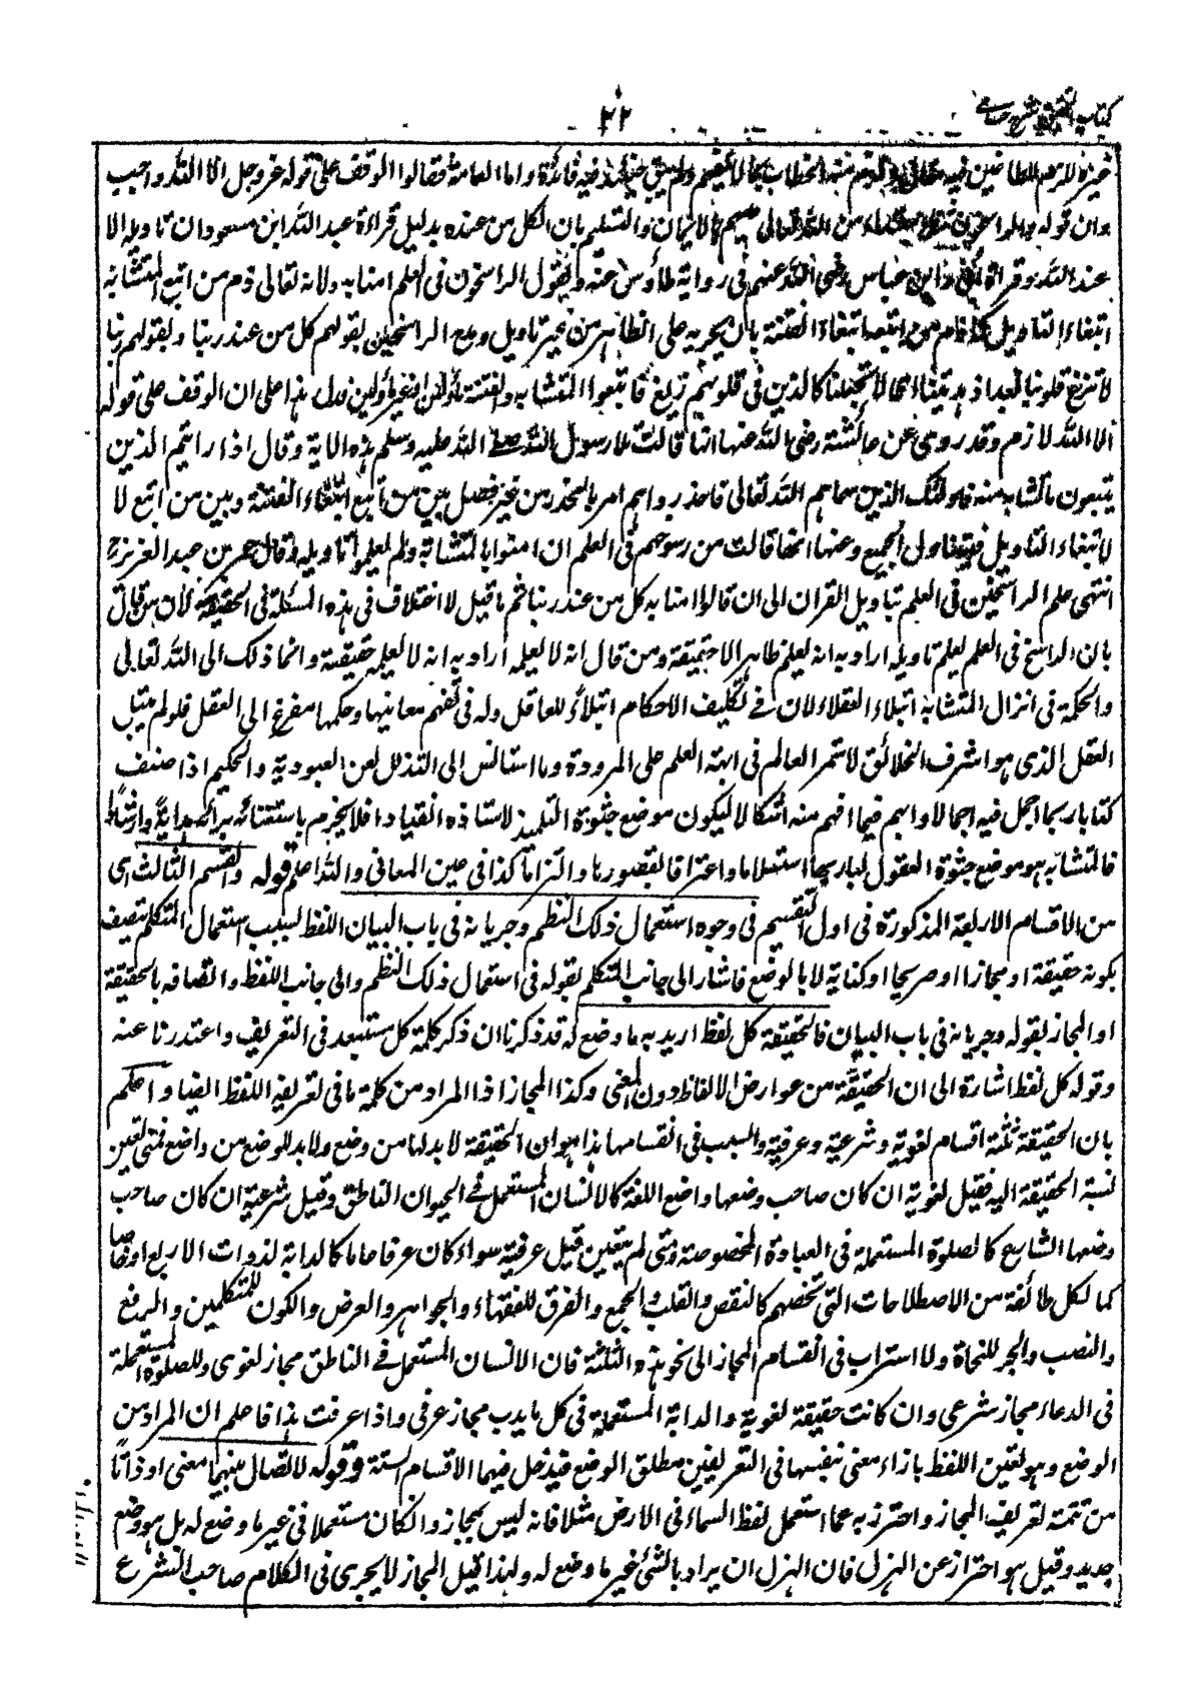 كتاب التحقيق شرح حسامي
٣٢
واما العامة فقالوا الوقف على قوله عز وجل الا الله واجب
وان قوله والراسخون من الله تعالى عليهم بالايمان والتسليم بان الكل من عنده بدليل قراءة عبد الله ابن مسعود ان تاويله الا
عند الله وقراءة ابي وابن عباس رضى الله عنهم فى رواية طاؤس عنه ويقول الراسخون فى العلم امنا به ولانه تعالى ذم من اتبع المتشابه
ابتغاء التاويل كما ذم من اتبعه ابتغاء الفتنة بان يجريه على الظاهر من غير تاويل ومدح الراسخين بقولهم كل من عند ربنا وبقولهم ربنا
لا تزغ قلوبنا بعد اذ هديتنا اى لا تجعلنا كالذين فى قلوبهم زيغ فاتبعوا المتشابه فدل هذا على ان الوقف على قوله
الا الله لازم وقد روى عن عائشة رضى الله عنها انها قالت تلا رسول الله صلى الله عليه وسلم هذه الاية وقال اذا رايتم الذين
يتبعون ما تشابه منه فاولئك الذين سماهم الله تعالى فاحذروهم امر بالحذر من غير فصل بين من اتبع ابتغاء الفتنة وبين من اتبع لا
لابتغاء التاويل فيتناول الجميع وعنها انها قالت من رسوخهم فى العلم ان امنوا بالمتشابه ولم يعلموا تاويله وقال عمر بن عبد العزيز رح
انتهى علم الراسخين فى العلم بتاويل القران الى ان قالوا امنا به كل من عند ربنا ثم ما قيل لا اختلاف فى هذه المسئلة فى الحقيقة لان من قال
بان الراسخ فى العلم يعلم تاويله اراد به انه يعلم ظاهرا لا حقيقة ومن قال انه لا يعلمه اراد به انه لا يعلمه حقيقة وانما ذلك الى الله تعالى
والحكمة فى انزال المتشابه ابتلاء العقلاء لان فى تكليف الاحكام ابتلاء للعاقل وله فى تفهم معانيها وحكمها مفرغ الى العقل فلو لم يبتل
العقل الذى هو اشرف الخلائق لاستمر العالم فى ابهة العلم على المرودة وما استانس الى التذلل لعز العبودية والحكيم اذا صنف
كتابا ربما اجمل فيه اجمالا وابهم فيما افهم منه اشكالا ليكون موضع جثوة التلميذ لاستاذه انقيادا فلا يحرم باستغنائه برايه هداية وارشادا
فالمتشابه هو موضع جثوة العقول لباريها استسلاما واعترافا لقصورها والتزاما كذا فى عين المعانى والله اعلم قوله والقسم الثالث اى
من الاقسام الاربعة المذكورة فى اول التقسيم فى وجوه استعمال ذلك النظم وجريانه فى باب البيان اللفظ بسبب استعمال المتكلم يتصف
بكونه حقيقة او مجازا او صريحا او كناية لا بالوضع فاشار الى جانب المتكلم بقوله فى استعمال ذلك النظم والى جانب اللفظ واتصافه بالحقيقة
او المجاز بقوله وجريانه فى باب البيان فالحقيقة كل لفظ اريد به ما وضع له قد ذكرنا ان ذكر كلمة كل مستبعد فى التعريف واعتذرنا عنه
وقوله كل لفظ اشارة الى ان الحقيقة من عوارض الالفاظ دون المعنى وكذا المجاز اذا المراد من كلمة ما فى تعريفه اللفظ ايضا واعلم
بان الحقيقة ثلثة اقسام لغوية وشرعية وعرفية والسبب فى انقسامها هذا هو ان الحقيقة لا بد لها من وضع ولا بد للوضع من واضع فمتى تعين
نسبة الحقيقة اليه فقيل لغوية ان كان صاحب وضعها واضع اللغة كالانسان المستعمل فى الحيوان الناطق وقيل شرعية ان كان صاحب
وضعها الشارع كالصلوة المستعملة فى العبادة المخصوصة ومتى لم يتعين قيل عرفية سواء كان عرفا عاما كالدابة لذوات الاربع او خاصا
كما لكل طائفة من الاصطلاحات التى تخصهم كالنقض والقلب والجمع والفرق للفقهاء والجواهر والعرض والكون للمتكلمين والرفع
والنصب والجر للنحاة ولا استراب فى انقسام المجاز الى نحو هذه الثلثة فان الانسان المستعمل فى الناطق مجاز لغوى والصلوة المستعملة
فى الدعاء مجاز شرعى وان كانت حقيقة لغوية والدابة المستعملة فى كل ما يدب مجاز عرفى واذا عرفت هذا فاعلم ان المراد من
الوضع وهو تعيين اللفظ بازاء معنى بنفسها فى التعريفين مطلق الوضع فيدخل فيهما الاقسام الستة وقوله لاتصال بينهما معنى او ذاتا
من تتمة تعريف المجاز واحترز به عما استعمل لفظ السماء فى الارض مثلا فانه ليس بمجاز وان كان مستعملا فى غير ما وضع له بل هو وضع
جديد وقيل هو احتراز عن الهزل فان الهزل ان يراد بالشئ غير ما وضع له ولهذا قيل المجاز لا يجرى فى الكلام صاحب الشرع